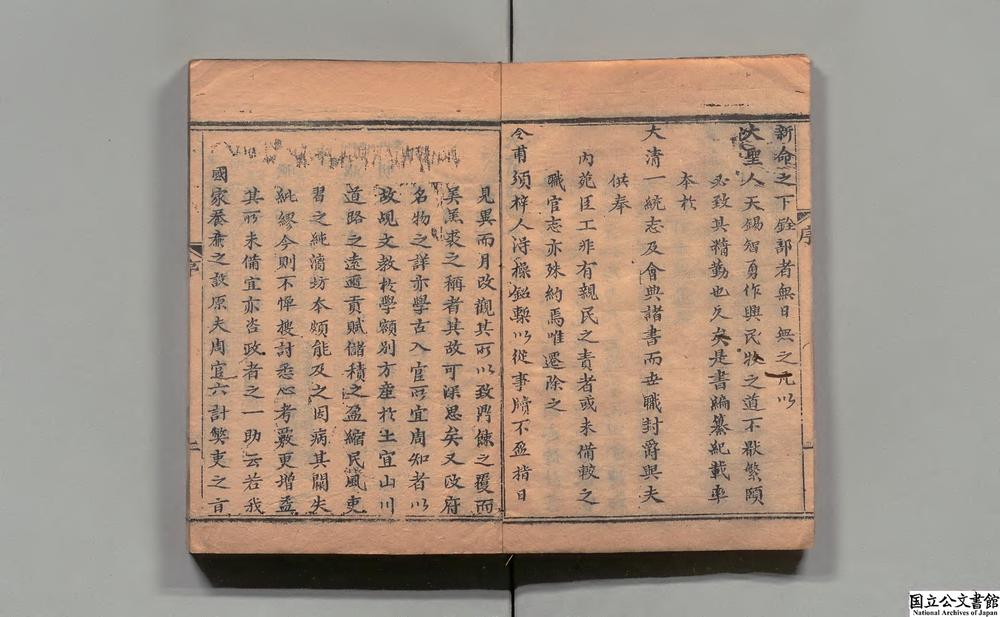 新命之下銓部者無日無之凡以
大聖人天錫智勇作興民牧之道不厭繁頤
必致其精勤也久矣是書編纂紀載率
本於
大清一統志及會典諸書而世職封爵與夫
內苑臣工非有親民之責者或未備較之
供奉
職官志亦殊約焉唯遷除之
令甫頒梓人淂操鉛槧以從事牘不盈指日
見異而月改觀其所以致門餗之覆而
羔裘之稱者其故可深思矣又政府
名物之詳亦學古入官所宜周知者以
故覘文教於學額別方產於土宜山川
道路之遠邇貢賦儲積之盈縮民風吏
習之純漓坊本頗能及之因病其闕失
紕繆今則不憚搜討悉心考覈更增益
其所未備宜亦咨政者之一助云若我
國家養亷之設原夫周官六計弊吏之旨
序
序
一
二
国立公文書館
National Archives of Japan